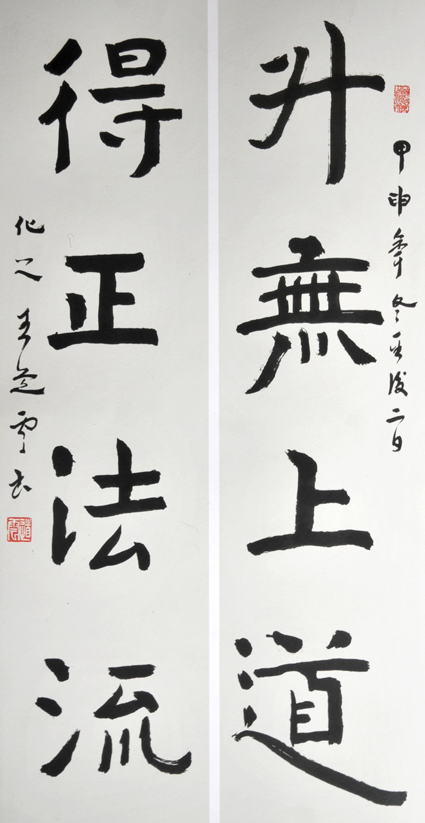 升無上道
甲申年冬至後二日
得正法流